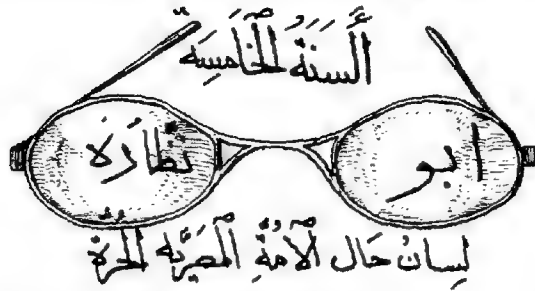 أَلسَنَةُ الخَامِسَة
ابو نظارَه
لِسانُ حَال الأُمَّةِ المَصرِيَّه الحُرَّة